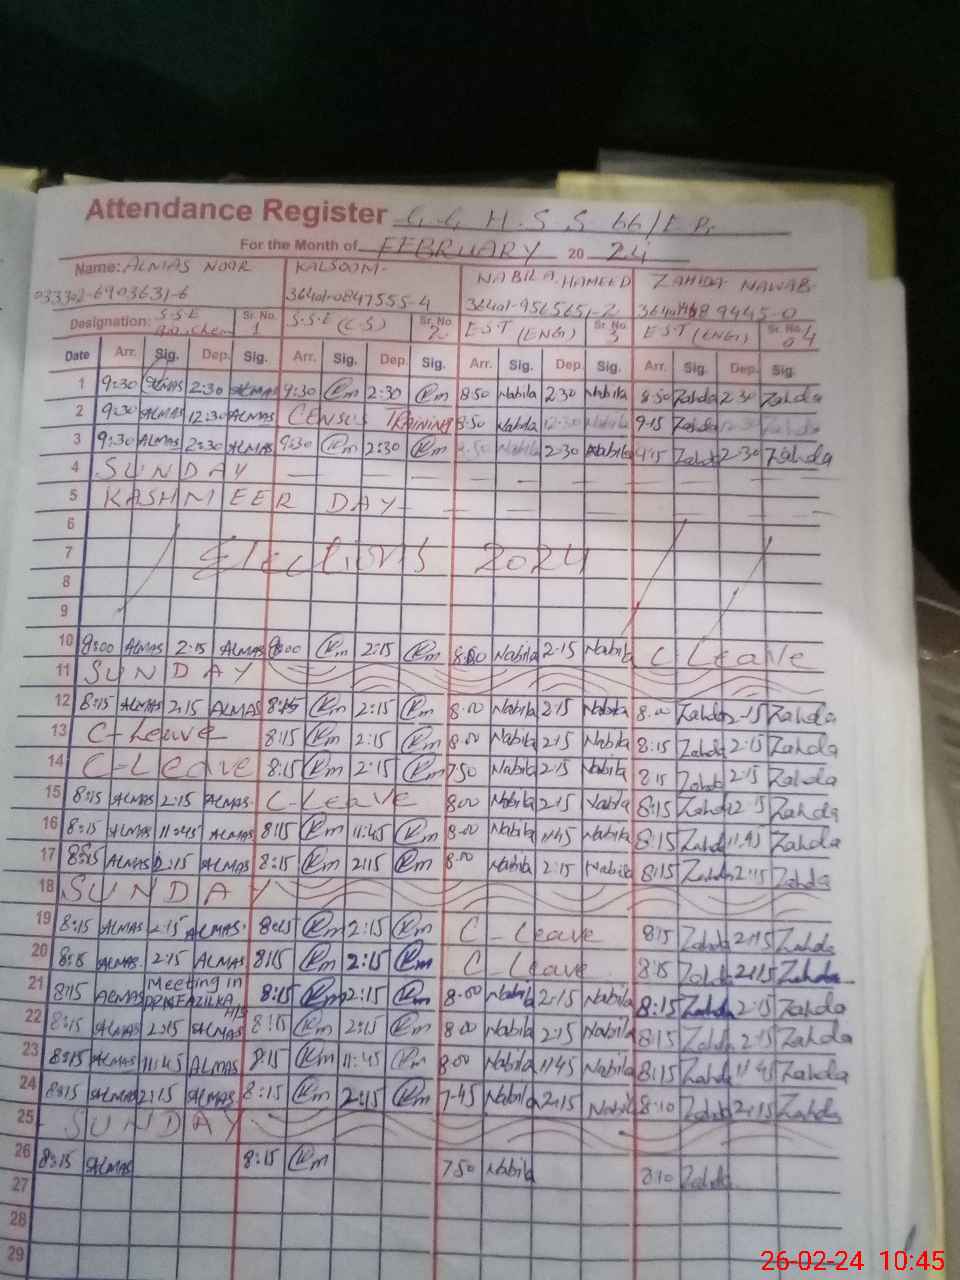 Attendance Register G.G.H.S.S 66/E.B.
For the Month of FEBRUARY 20 24
Name: ALMAS NOOR KALSOOM NABILA HAMEED ZAHIDA NAWAB
36401-0847555-4
Designation: S.S.E Sr. No. 1 S.S.E (C-S) Sr. No. 2 E.S.T (ENG) Sr. No. 3 E.S.T (ENG) Sr. No. 4
Date Arr. Sig. Dep. Sig. Arr. Sig. Dep. Sig. Arr. Sig. Dep. Sig. Arr. Sig. Dep. Sig.
1 9:30 ALMAS 2:30 ALMAS 9:30 Km 2:30 Km 8:50 Nabila 2:30 Nabila 8:50 Zahda 2:30 Zahda
2 9:30 ALMAS 12:30 ALMAS CENSUS TRAINING 8:50 Nabila 12:30 Nabila 9:15 Zahda 12:30 Zahda
3 9:30 ALMAS 2:30 ALMAS 9:30 Km 2:30 Km 8:50 Nabila 2:30 Nabila 9:15 Zahda 2:30 Zahda
4 SUNDAY
5 KASHMEER DAY
6
7 Elections 2024
8
9
10 9:00 ALMAS 2:15 ALMAS 9:00 Km 2:15 Km 8:00 Nabila 2:15 Nabila C Leave
11 SUNDAY
12 8:15 ALMAS 2:15 ALMAS 8:15 Km 2:15 Km 8:00 Nabila 2:15 Nabila 8:00 Zahda 2:15 Zahda
13 C-Leave 8:15 Km 2:15 Km 8:00 Nabila 2:15 Nabila 8:15 Zahda 2:15 Zahda
14 C-Leave 8:15 Km 2:15 Km 7:50 Nabila 2:15 Nabila 8:15 Zahda 2:15 Zahda
15 8:15 ALMAS 2:15 ALMAS C-Leave 8:00 Nabila 2:15 Nabila 8:15 Zahda 2:15 Zahda
16 8:15 ALMAS 11:45 ALMAS 8:15 Km 11:45 Km 8:00 Nabila 11:45 Nabila 8:15 Zahda 11:45 Zahda
17 8:15 ALMAS 2:15 ALMAS 8:15 Km 2:15 Km 8:00 Nabila 2:15 Nabila 8:15 Zahda 2:15 Zahda
18 SUNDAY
19 8:15 ALMAS 2:15 ALMAS 8:15 Km 2:15 Km C-Leave 8:15 Zahda 2:15 Zahda
20 8:15 ALMAS 2:15 ALMAS 8:15 Km 2:15 Km C-Leave 8:15 Zahda 2:15 Zahda
21 8:15 ALMAS Meeting in 8:15 Km 2:15 Km 8:00 Nabila 2:15 Nabila 8:15 Zahda 2:15 Zahda
22 8:15 ALMAS 2:15 ALMAS 8:15 Km 2:15 Km 8:00 Nabila 2:15 Nabila 8:15 Zahda 2:15 Zahda
23 8:15 ALMAS 11:45 ALMAS 8:15 Km 11:45 Km 8:00 Nabila 11:45 Nabila 8:15 Zahda 11:45 Zahda
24 8:15 ALMAS 2:15 ALMAS 8:15 Km 2:15 Km 7:45 Nabila 2:15 Nabila 8:10 Zahda 2:15 Zahda
25 SUNDAY
26 8:15 ALMAS 8:15 Km 7:50 Nabila 8:10 Zahda
27
28
29
26-02-24 10:45